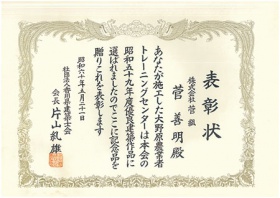 表彰状
株式会社 菅組
菅 善明 殿
あなたが施工した大野原農業者
トレーニングセンターは本会の
昭和五十九年度優良建築作品に
選ばれましたのでここに記念品を
贈りこれを表彰します
昭和六十年五月二十一日
社団法人香川県建築士会
会長 片山紈雄